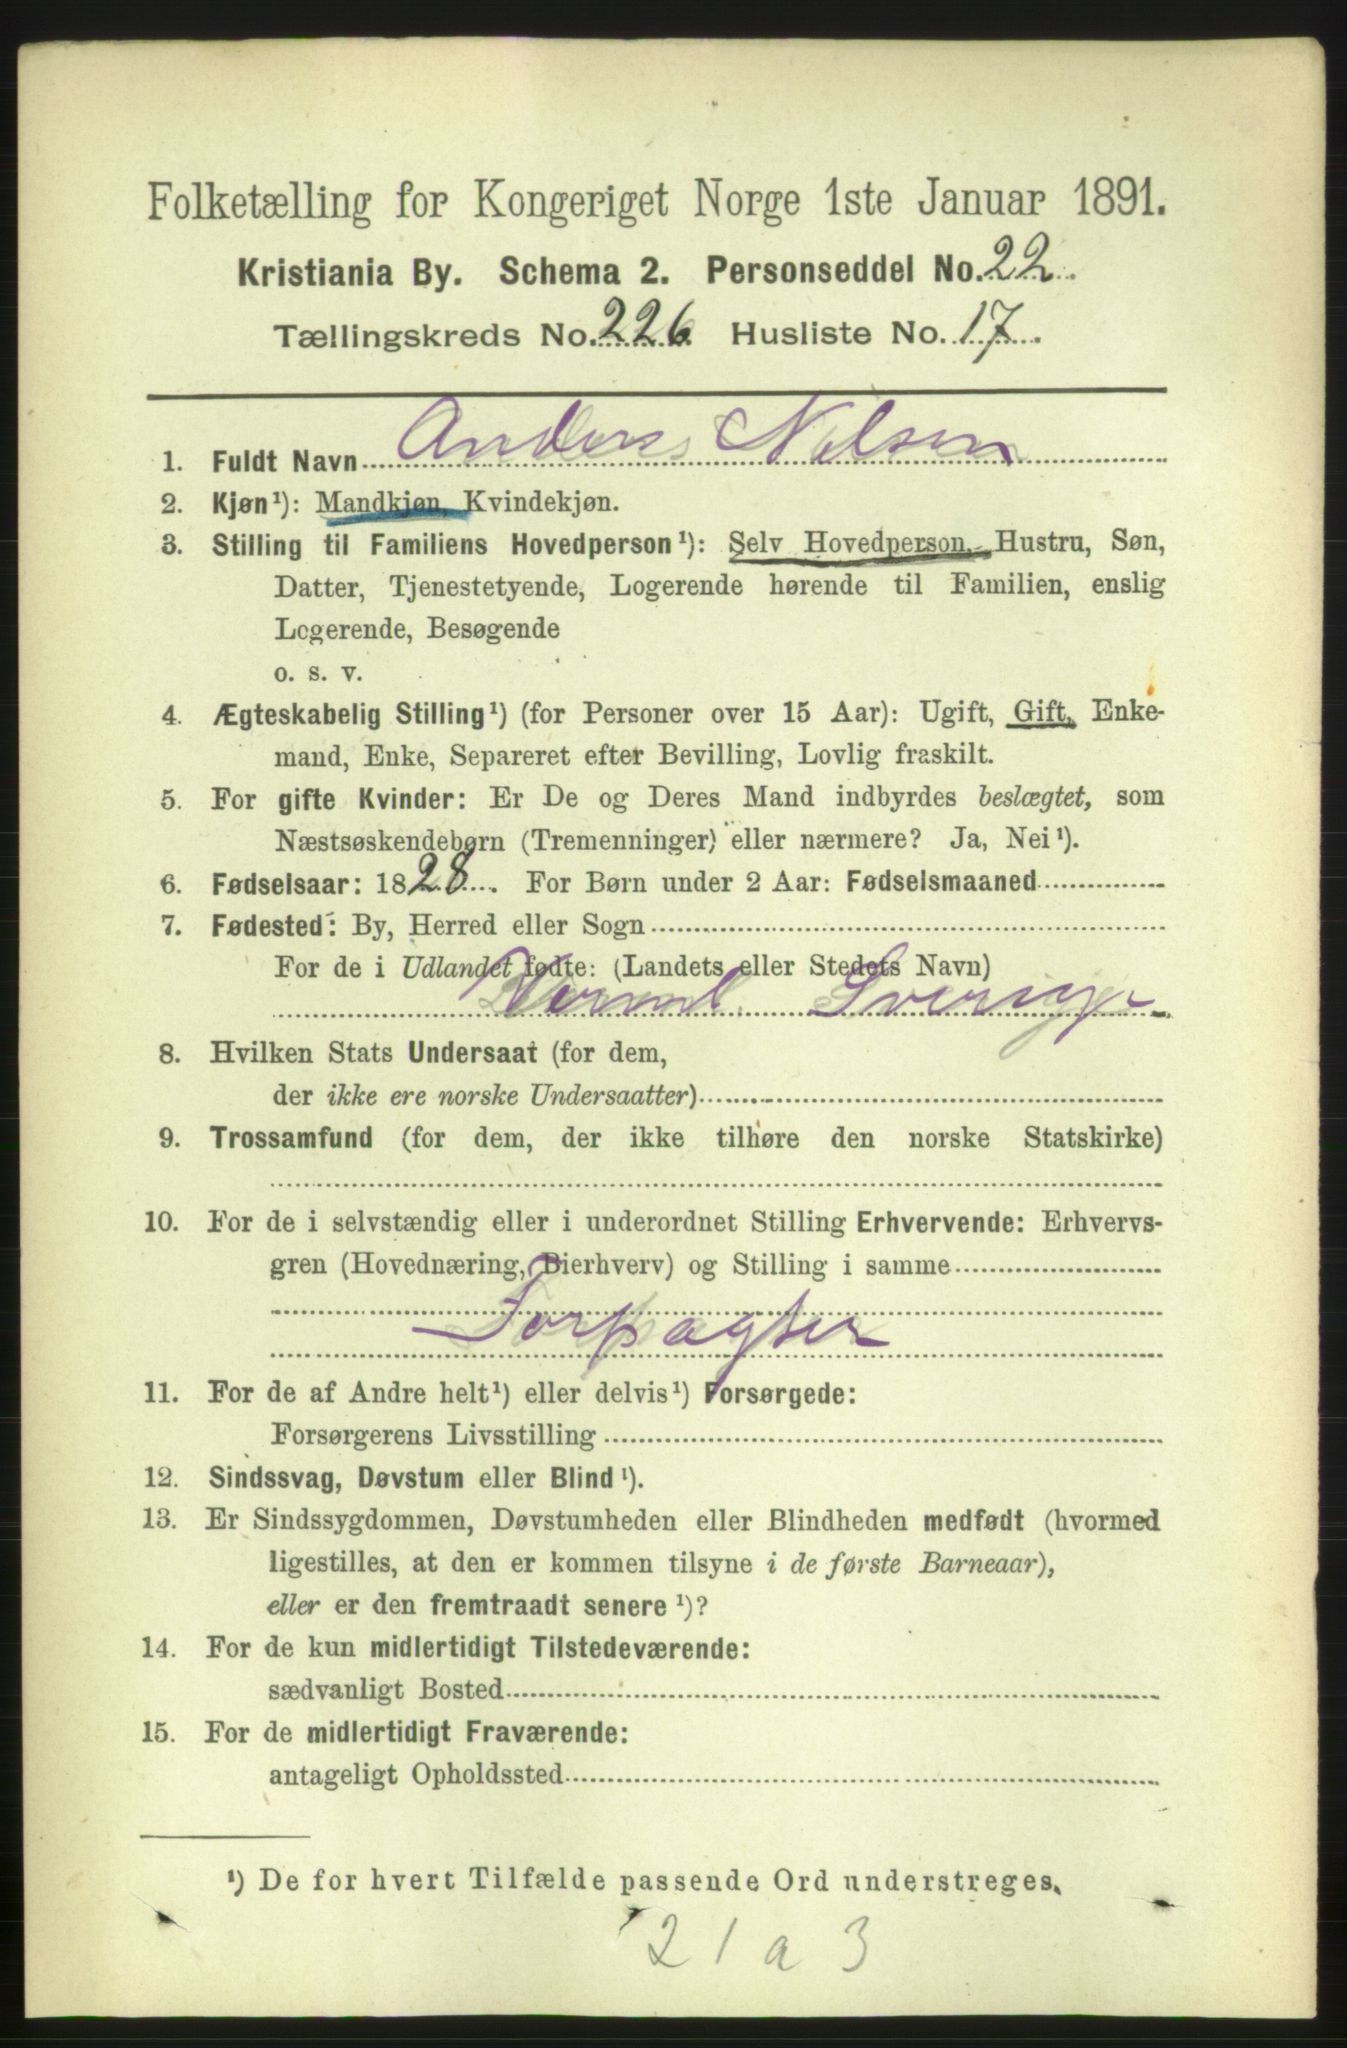 Folketælling for Kongeriget Norge 1ste Januar 1891.
Kristiania By. Schema 2. Personseddel No. 22
Tællingskreds No. 226 Husliste No. 17
1. Fuldt Navn Anders Nilsen
2. Kjøn¹): Mandkjøn, Kvindekjøn.
3. Stilling til Familiens Hovedperson¹): Selv Hovedperson, Hustru, Søn,
Datter, Tjenestetyende, Logerende hørende til Familien, enslig
Logerende, Besøgende
o. s. v.
4. Ægteskabelig Stilling¹) (for Personer over 15 Aar): Ugift, Gift, Enke-
mand, Enke, Separeret efter Bevilling, Lovlig fraskilt.
5. For gifte Kvinder: Er De og Deres Mand indbyrdes beslægtet, som
Næstsøskendebørn (Tremenninger) eller nærmere? Ja, Nei¹).
6. Fødselsaar: 1828. For Børn under 2 Aar: Fødselsmaaned
7. Fødested: By, Herred eller Sogn
For de i Udlandet fødte: (Landets eller Stedets Navn)
Verml. Sverige
8. Hvilken Stats Undersaat (for dem,
der ikke ere norske Undersaatter)
9. Trossamfund (for dem, der ikke tilhøre den norske Statskirke)
10. For de i selvstændig eller i underordnet Stilling Erhvervende: Erhvervs-
gren (Hovednæring, Bierhverv) og Stilling i samme
Forpagter
11. For de af Andre helt¹) eller delvis¹) Forsørgede:
Forsørgerens Livsstilling
12. Sindssvag, Døvstum eller Blind¹).
13. Er Sindssygdommen, Døvstumheden eller Blindheden medfødt (hvormed
ligestilles, at den er kommen tilsyne i de første Barneaar),
eller er den fremtraadt senere¹)?
14. For de kun midlertidigt Tilstedeværende:
sædvanligt Bosted
15. For de midlertidigt Fraværende:
antageligt Opholdssted
¹) De for hvert Tilfælde passende Ord understreges.
21 a 3